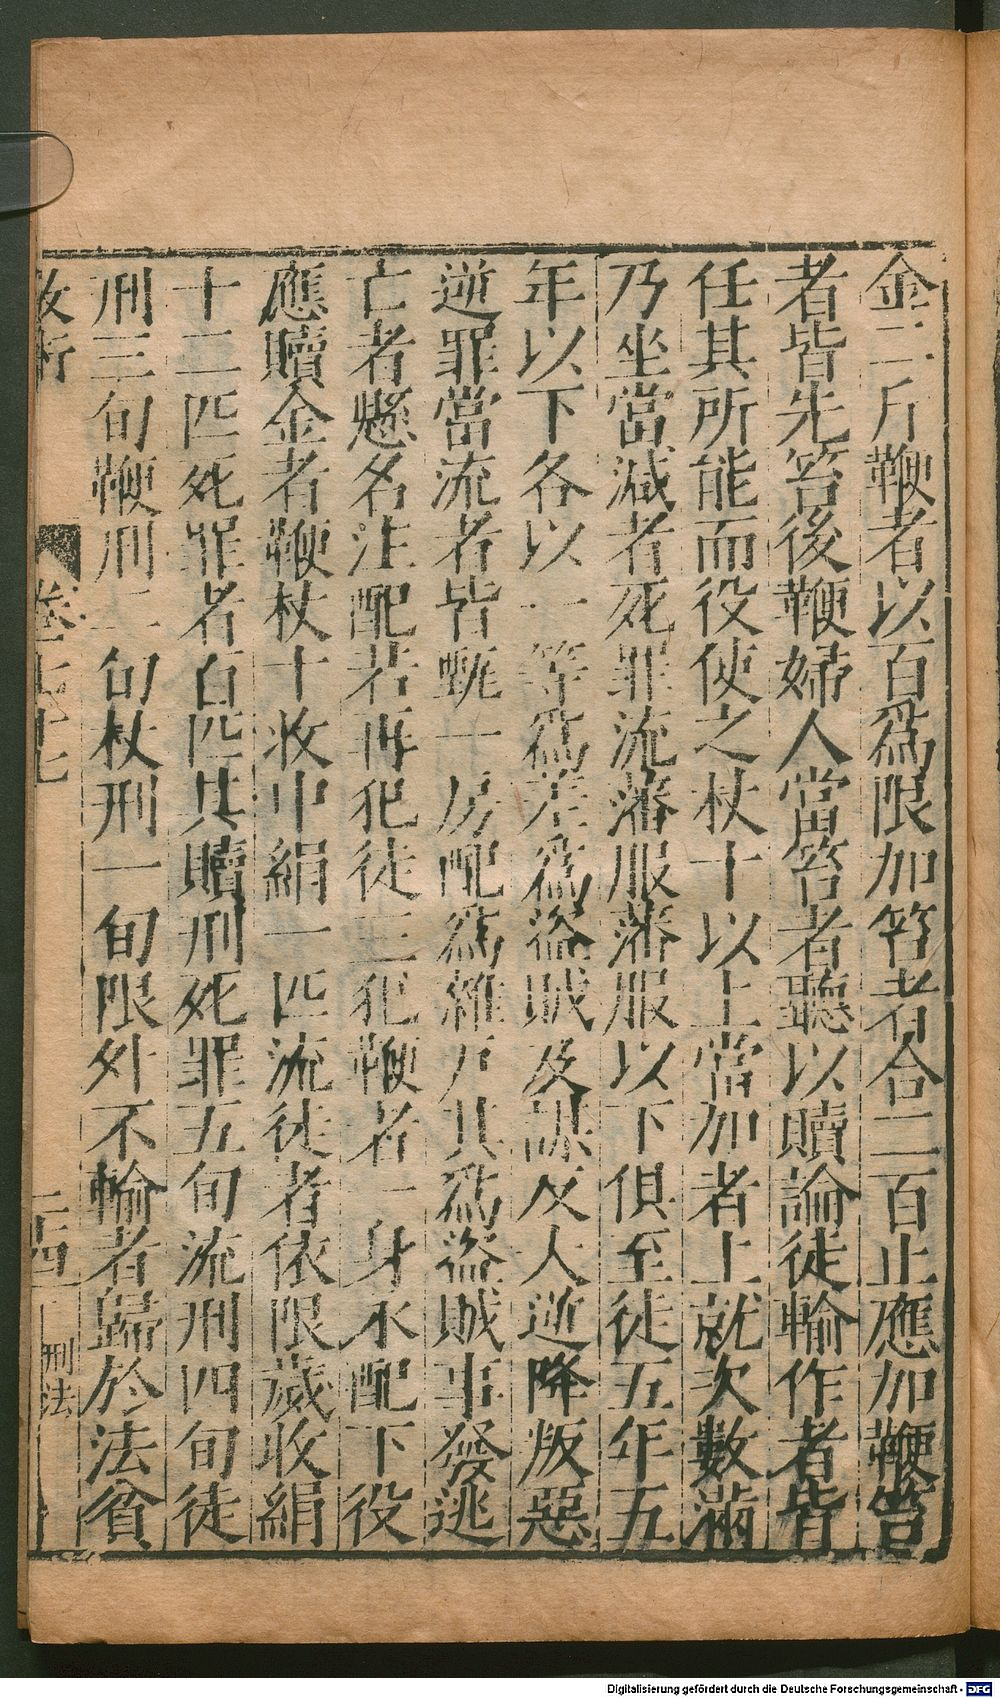 金二斤鞭者以百爲限加笞者合二百止應加鞭笞
者皆先笞後鞭婦人當笞者聽以贖論徒輸作者皆
任其所能而役使之杖十以上當加者上就次數滿
乃坐當減者死罪流蕃服蕃服以下俱至徒五年五
年以下各以一等爲差爲盜賊及謀反大逆降叛惡
逆罪當流者皆甄一房配爲雜戶其爲盜賊事發逃
亡者懸名注配若再犯徒三犯鞭者一身永配下役
應贖金者鞭杖十收中絹一匹流徒者依限歲收絹
十二匹死罪者百匹其贖刑死罪五旬流刑四旬徒
刑三旬鞭刑二旬杖刑一旬限外不輸者歸於法貧
卷七十七
二四
刑法
Digitalisierung gefördert durch die Deutsche Forschungsgemeinschaft - DFG